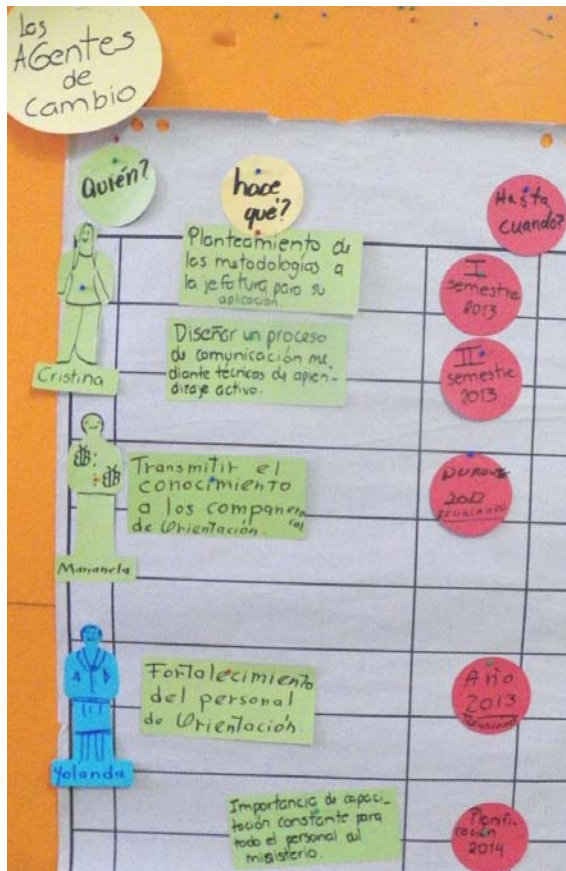 Los
AGentes
de
cambio
Quién?
hace
qué?
Hasta
cuando?
Planteamiento de
las metodologías a
la jefatura para su
aplicación.
I
semestre
2013
Diseñar un proceso
de comunicación me-
diante técnicas de apren-
dizaje activo.
II
semestre
2013
Cristina
Transmitir el
conocimiento
a los compañeros
(as)
de Orientación.
2013
Marianela
Fortalecimiento
del personal
de Orientación.
Año
2013
Yolanda
Importancia de capaci-
tación constante para
todo el personal del
ministerio.
Planifi-
cación
2014